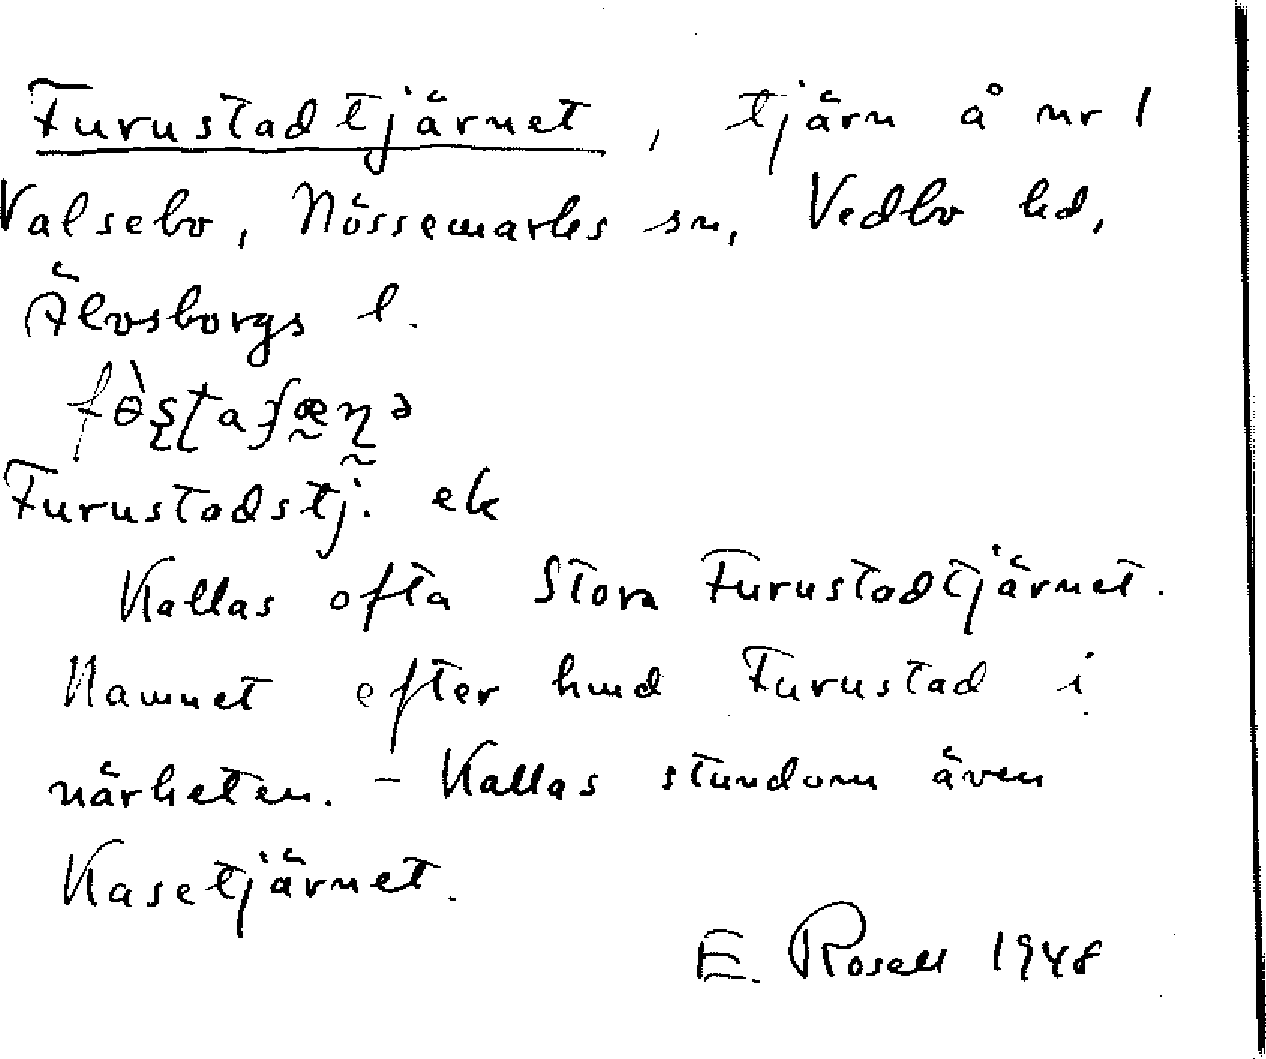 Furustadtjärnet, tjärn å nr 1
Valsebo, Nössemarks sn, Vedbo hd,
Älvsborgs l.
Furustadstj. ek
Kallas ofta Stora Furustadtjärnet.
Namnet efter hmd Furustad i
närheten. - Kallas stundom även
Kasetjärnet.
E. Rosell 1948